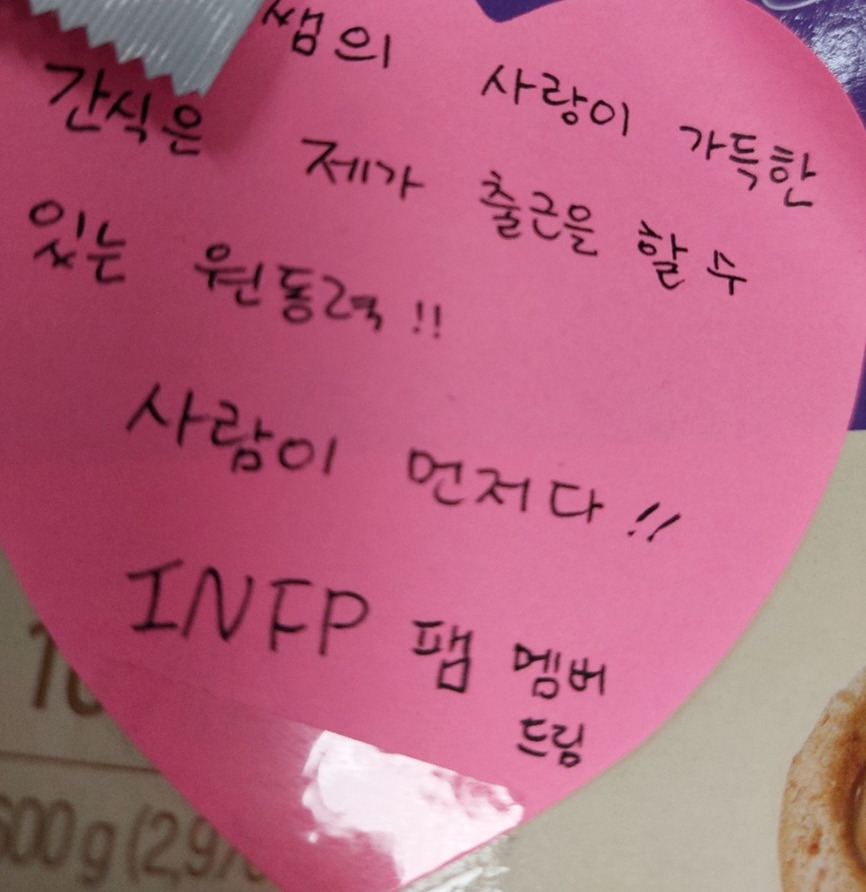 쌤의 사랑이 가득한
간식은 제가 출근을 할 수
있는 원동력!!
사람이 먼저다!!
INFP 팸 멤버
드림
600g(2,97